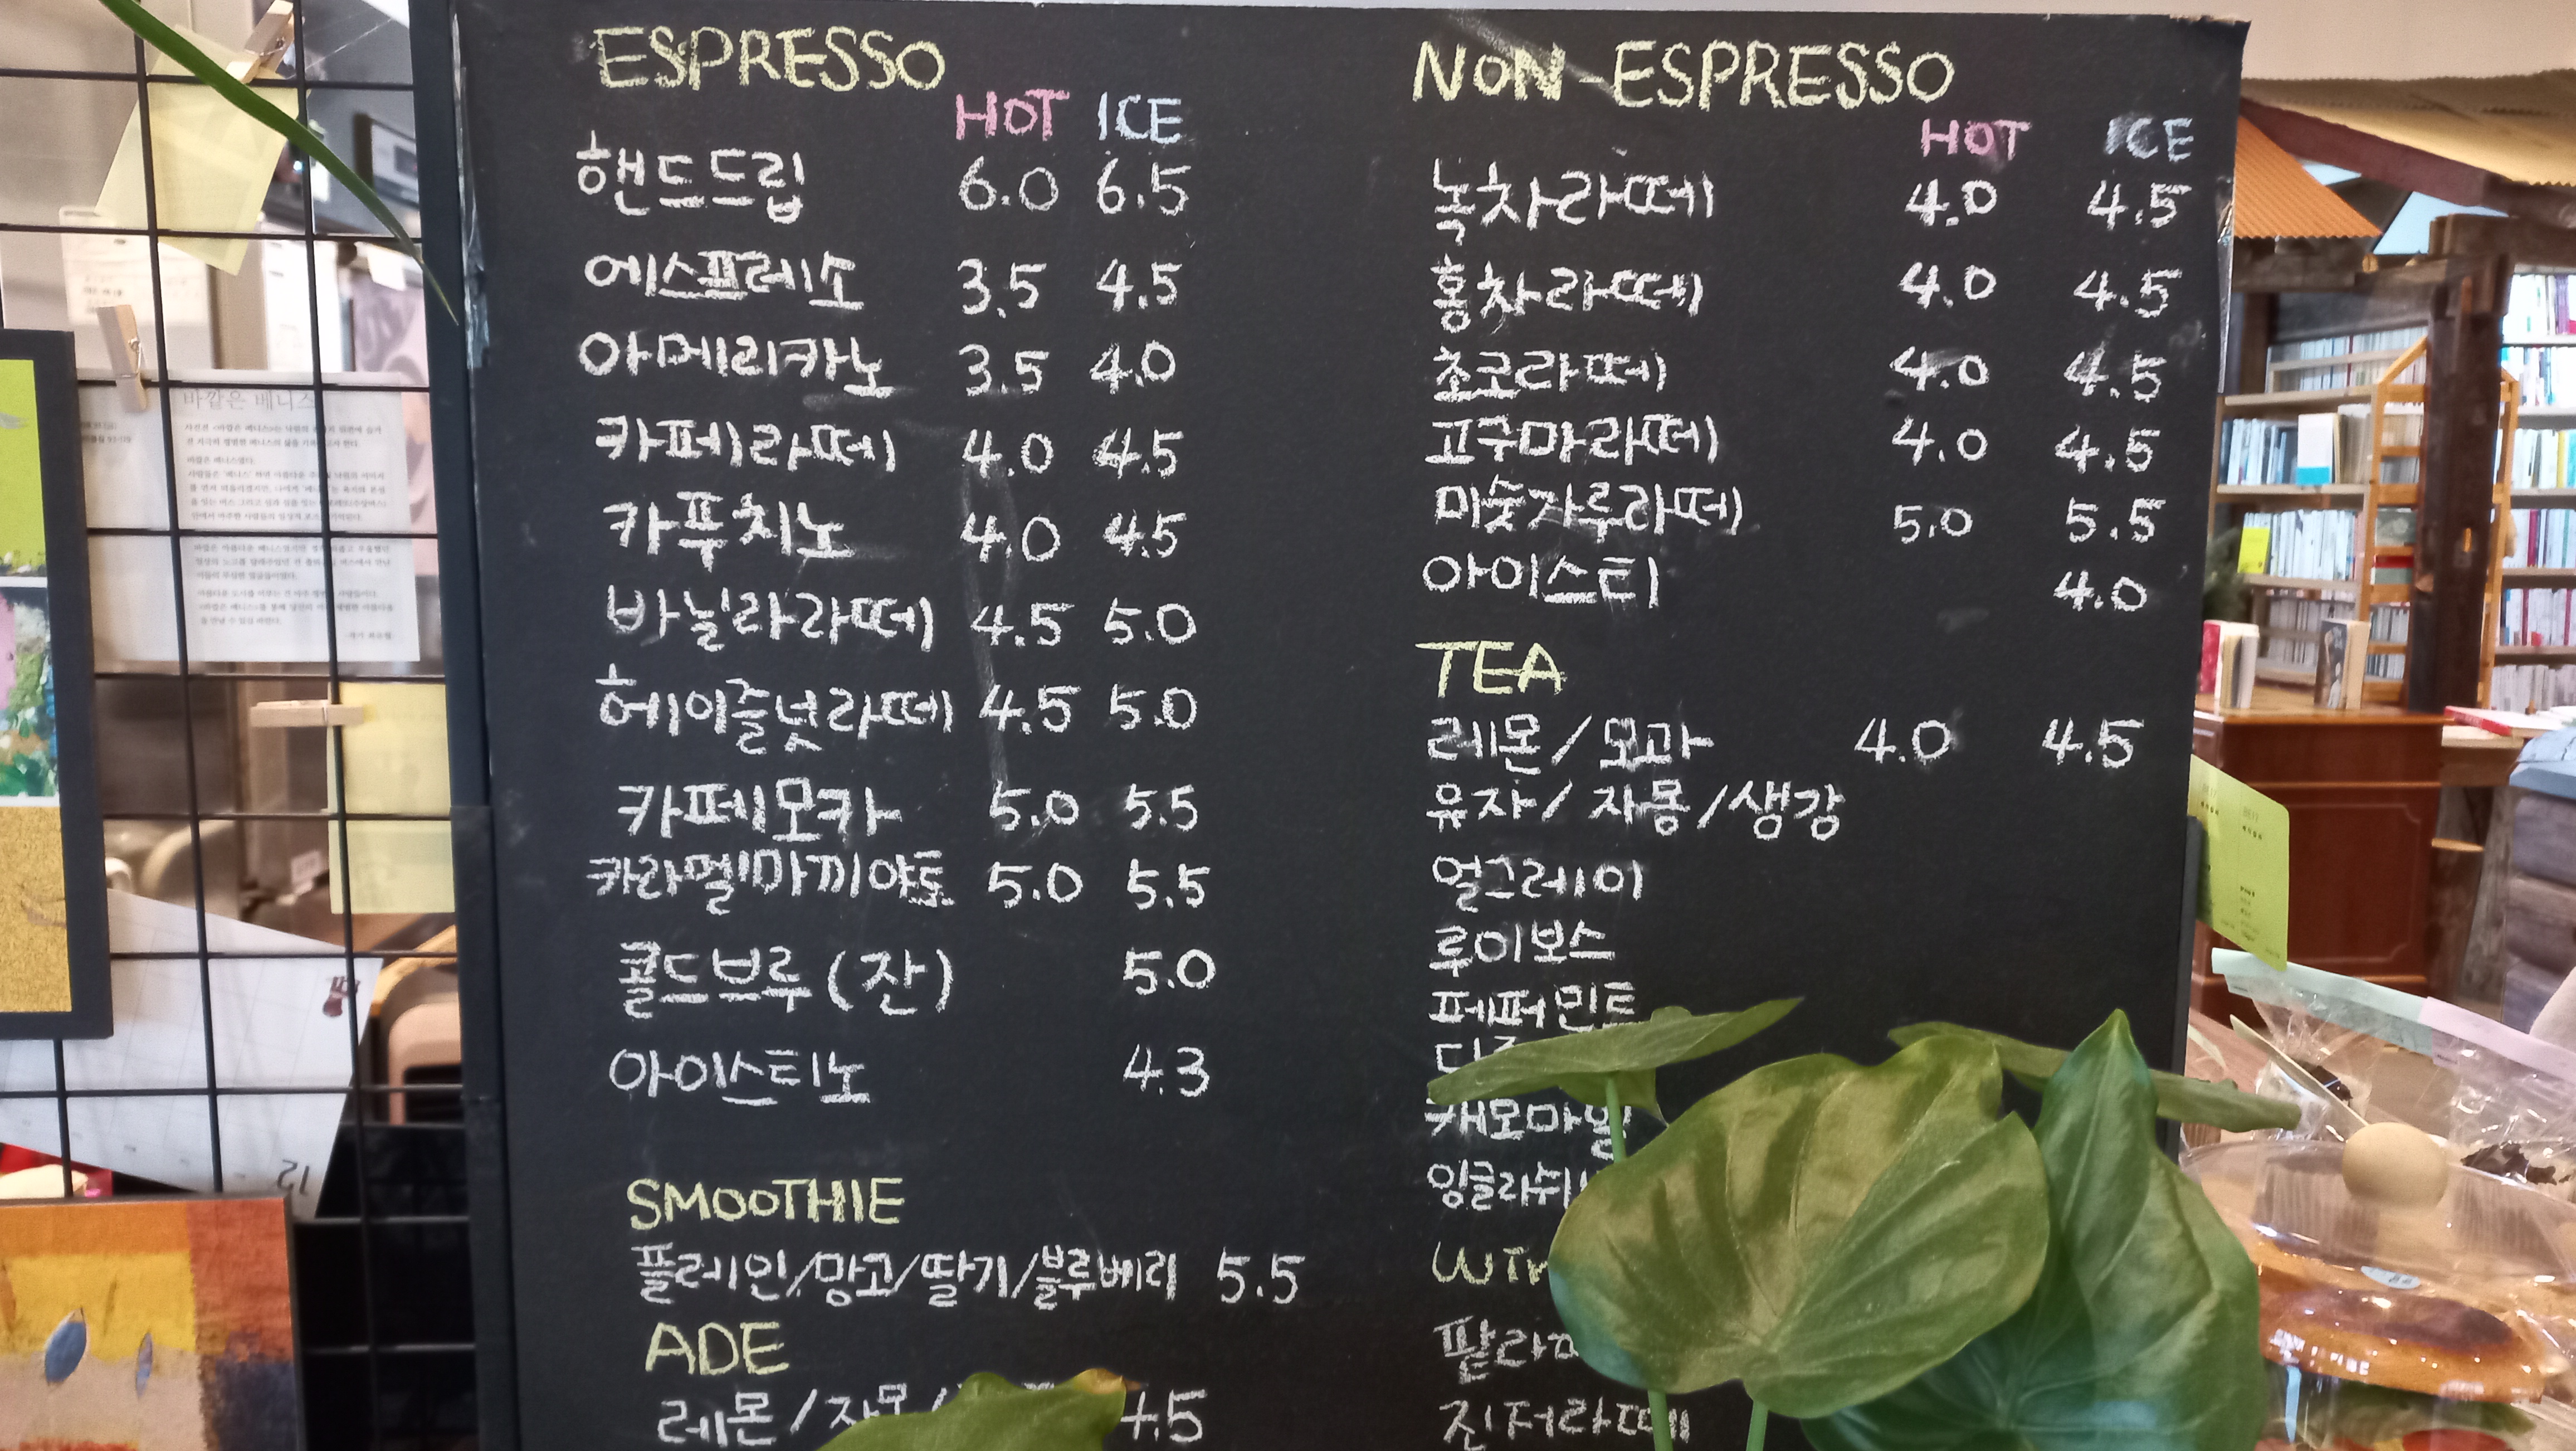 ESPRESSO
HOT ICE
핸드드립 6.0 6.5
에스프레소 3.5 4.5
아메리카노 3.5 4.0
카페라떼 4.0 4.5
카푸치노 4.0 4.5
바닐라라떼 4.5 5.0
헤이즐넛라떼 4.5 5.0
카페모카 5.0 5.5
카라멜마끼야또 5.0 5.5
콜드브루(잔) 5.0
아이스티노 4.3
SMOOTHIE
플레인/망고/딸기/블루베리 5.5
ADE
레몬/자몽/ 4.5
NON-ESPRESSO
HOT ICE
녹차라떼 4.0 4.5
홍차라떼 4.0 4.5
초코라떼 4.0 4.5
고구마라떼 4.0 4.5
미숫자루라떼 5.0 5.5
아이스티 4.0
TEA
레몬/모과 4.0 4.5
유자/자몽/생강
얼그레이
루이보스
페퍼민트
캐모마일
잉글리쉬
진저라떼
바깥은 베니스